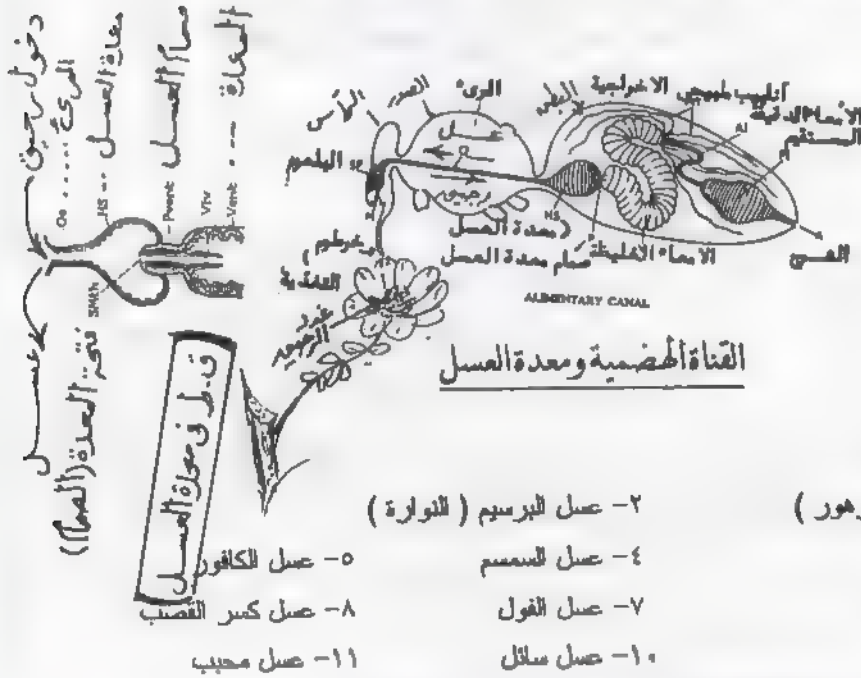 دخول رحيق
المرئ ..... Oe
معدة العسل -- HS
صمام العسل -Provnt
Vlv
المعدة --- Vent
SMth
عسل
فتحة المعدة (الصمام)
ق.ط فى معدة العسل
الرأس
الصدر
المرئ
البطن
الاخراجية
أنابيب ملبيجى
الأمعاء الدقيقة
AI
المستقيم
البلعوم
عسل
رحيق
HS
(معدة العسل
صمام معدة العسل
الامعاء الغليظة
الشرج
خرطوم
التغذية
غدد
الرحيق
ALIMENTARY CANAL
القناة الهضمية ومعدة العسل
زهور )
٢- عسل البرسيم ( النوارة )
٤- عسل السمسم
٥- عسل الكافور
٧- عسل الفول
٨- عسل كسر القصب
١٠- عسل سائل
١١- عسل محبب